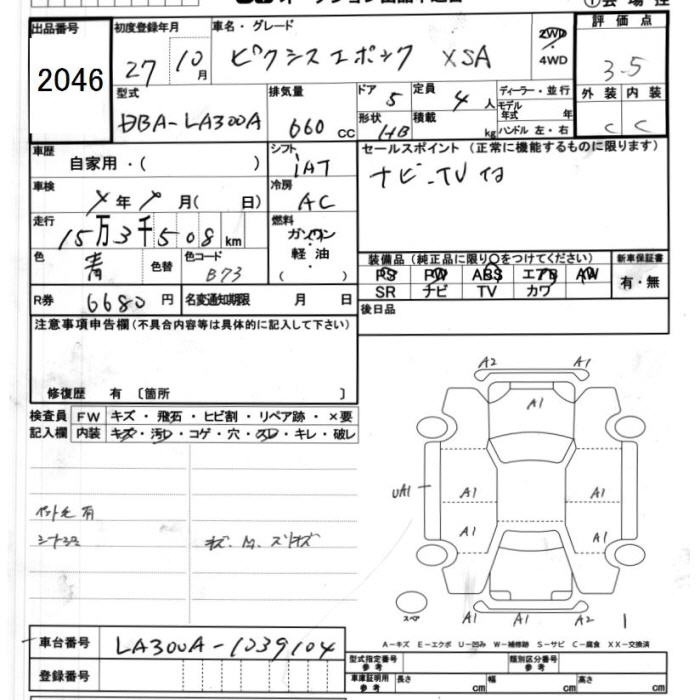 ①会場控
出品番号 初度登録年月 車名・グレード 評価点
2046 27 10月 ピクシスエポック XSA 2WD・4WD 3.5
型式 排気量 ドア 定員 ディーラー・並行 外装 内装
DBA-LA300A 660cc 5 4人 モデル年式 年 C C
形状 HB 積載 kg ハンドル 左・右
車歴 シフト セールスポイント(正常に機能するものに限ります)
自家用・( ) IAT ナビ-TV付
車検 冷房
年 月( 日) AC
走行 燃料
15万3千508km ガソリン・軽油・( )
色 色替 色コード 装備品(純正品に限り○をつけてください) 新車保証書
青 B73 PS PW ABS エアB AW 有・無
SR ナビ TV カワ
R券 6680円 名変通知期限 月 日 後日品
注意事項申告欄(不具合内容等は具体的に記入して下さい)
修復歴 有〔箇所 〕
検査員 FW キズ・飛石・ヒビ割・リペア跡・×要
記入欄 内装 キズ・汚レ・コゲ・穴・スレ・キレ・破レ
A2 A1
A1
UA1 A1 A1
A1 A1
A1
スペア A1 A2 1
車台番号 LA300A-1039104
A-キズ E-エクボ U-凹み W-補修跡 S-サビ C-腐食 XX-交換済
登録番号 型式指定番号 参考 類別区分番号 参考
車庫証明用 参考 長さ cm 幅 cm 高さ cm